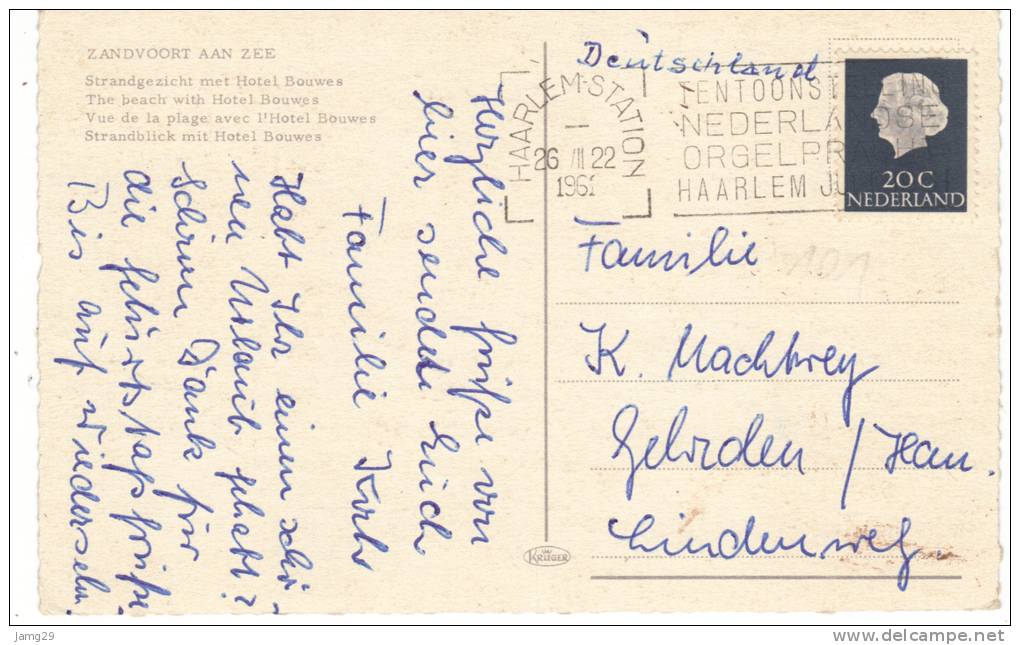 ZANDVOORT AAN ZEE
Strandgezicht met Hotel Bouwes
The beach with Hotel Bouwes
Vue de la plage avec l'Hotel Bouwes
Strandblick mit Hotel Bouwes
Herzliche Grüße von
hier sendet Euch
Familie
Habt Ihr einen schö-
nen Urlaub gehabt?
Schönen Dank für
die Geburtstagsgrüße.
Bis auf Wiedersehn.
Deutschland
HAARLEM-STATION
26 VII 22
1962
TENTOONSTELLING
NEDERLANDSE
ORGELPR
HAARLEM JU
20 C
NEDERLAND
Familie
K.
Gehrden / Han.
Lindenweg.
KRÜGER
Jamg29
www.delcampe.net